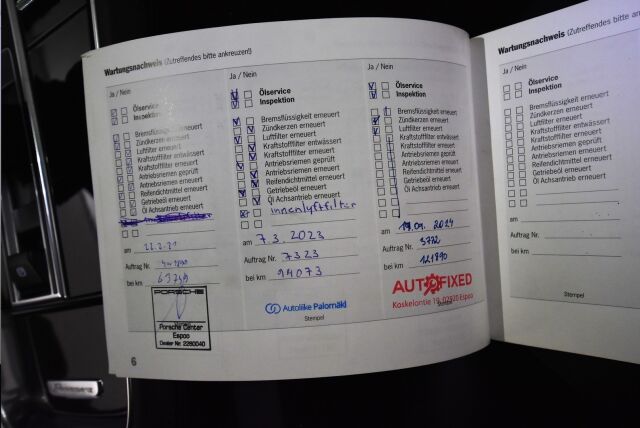 Wartungsnachweis (Zutreffendes bitte ankreuzen!)
Ja / Nein
Ölservice
Inspektion
Bremsflüssigkeit erneuert
Zündkerzen erneuert
Luftfilter erneuert
Kraftstofffilter entwässert
Kraftstofffilter erneuert
Antriebsriemen geprüft
Antriebsriemen erneuert
Reifendichtmittel erneuert
Getriebeöl erneuert
Öl Achsantrieb erneuert
am 22.2.21
Auftrag Nr.
bei km
PORSCHE
Porsche Center
Espoo
Dealer Nr: 2280040
6
Ja / Nein
Ölservice
Inspektion
Bremsflüssigkeit erneuert
Zündkerzen erneuert
Luftfilter erneuert
Kraftstofffilter entwässert
Kraftstofffilter erneuert
Antriebsriemen geprüft
Antriebsriemen erneuert
Reifendichtmittel erneuert
Getriebeöl erneuert
Öl Achsantrieb erneuert
innenlyftfilter
am 7.3.2023
Auftrag Nr. 7323
bei km 94073
Autoliike Palomäki
Stempel
Ja / Nein
Ölservice
Inspektion
Bremsflüssigkeit erneuert
Zündkerzen erneuert
Luftfilter erneuert
Kraftstofffilter entwässert
Kraftstofffilter erneuert
Antriebsriemen geprüft
Antriebsriemen erneuert
Reifendichtmittel erneuert
Getriebeöl erneuert
Öl Achsantrieb erneuert
am 19.04.2024
Auftrag Nr. 3772
bei km 121890
AUTOFIXED
Koskelontie 19, 02920 Espoo
Stempel
Wartungsnachweis (Zutreffendes bitte ankreuzen!)
Ja / Nein
Ölservice
Inspektion
Bremsflüssigkeit erneuert
Zündkerzen erneuert
Luftfilter erneuert
Kraftstofffilter entwässert
Kraftstofffilter erneuert
Antriebsriemen geprüft
Antriebsriemen erneuert
Reifendichtmittel erneuert
Getriebeöl erneuert
Öl Achsantrieb erneuert
am
Auftrag Nr.
bei km
Stempel